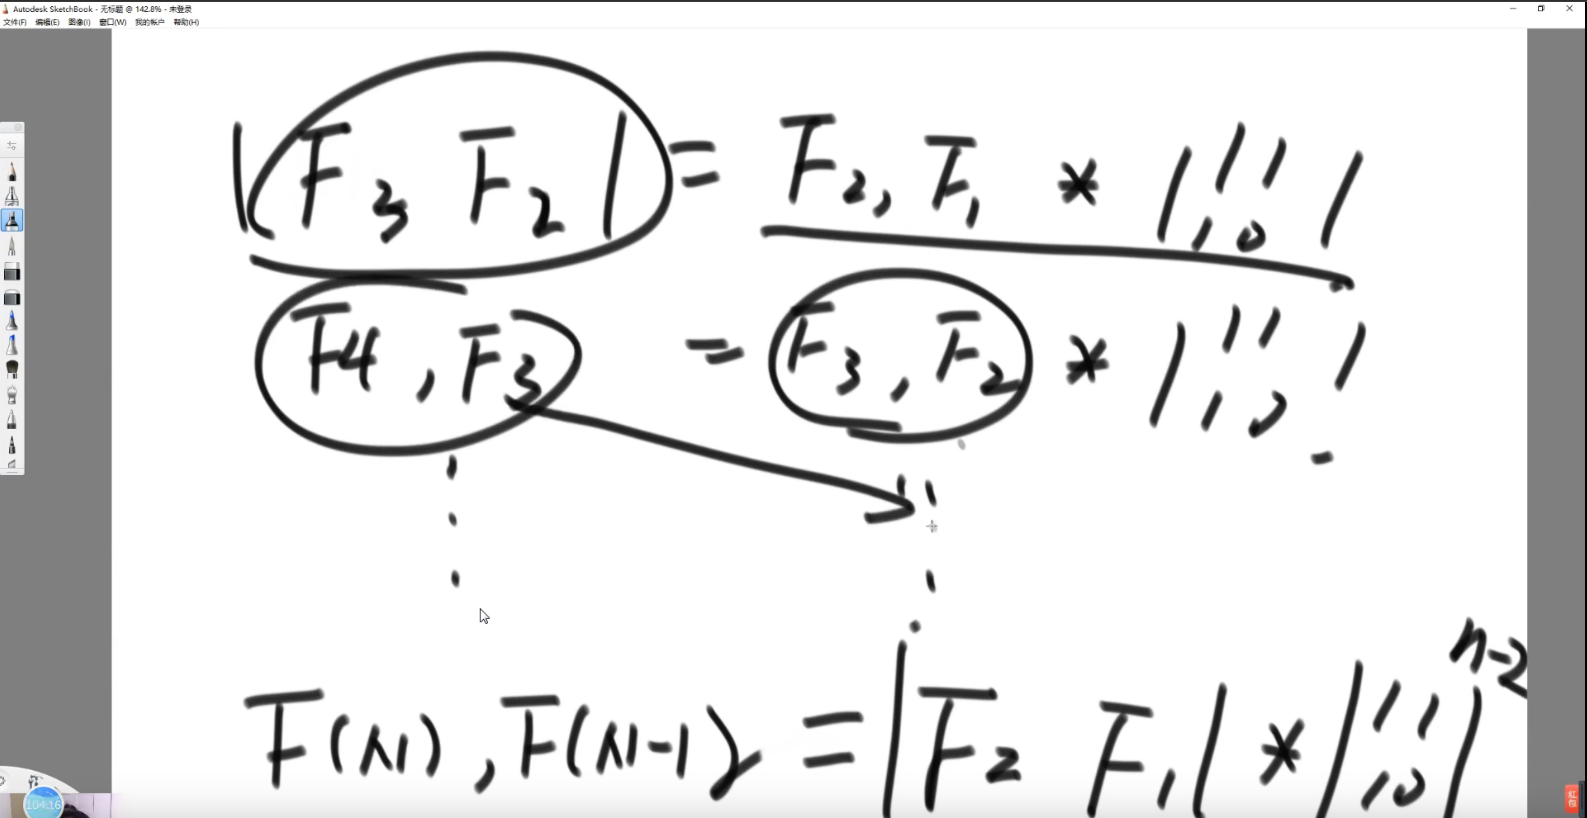 Autodesk SketchBook - 无标题 @ 142.8% - 未登录
文件(F) 编辑(E) 图像(I) 窗口(W) 我的帐户 帮助(H)
|F3 F2| = F2, F1 * |1 1
1 0|
F4, F3 = F3, F2 * |1 1
1 0|
F(n), F(n-1) = |F2 F1| * |1 1
1 0|^n-2
104:16
红包